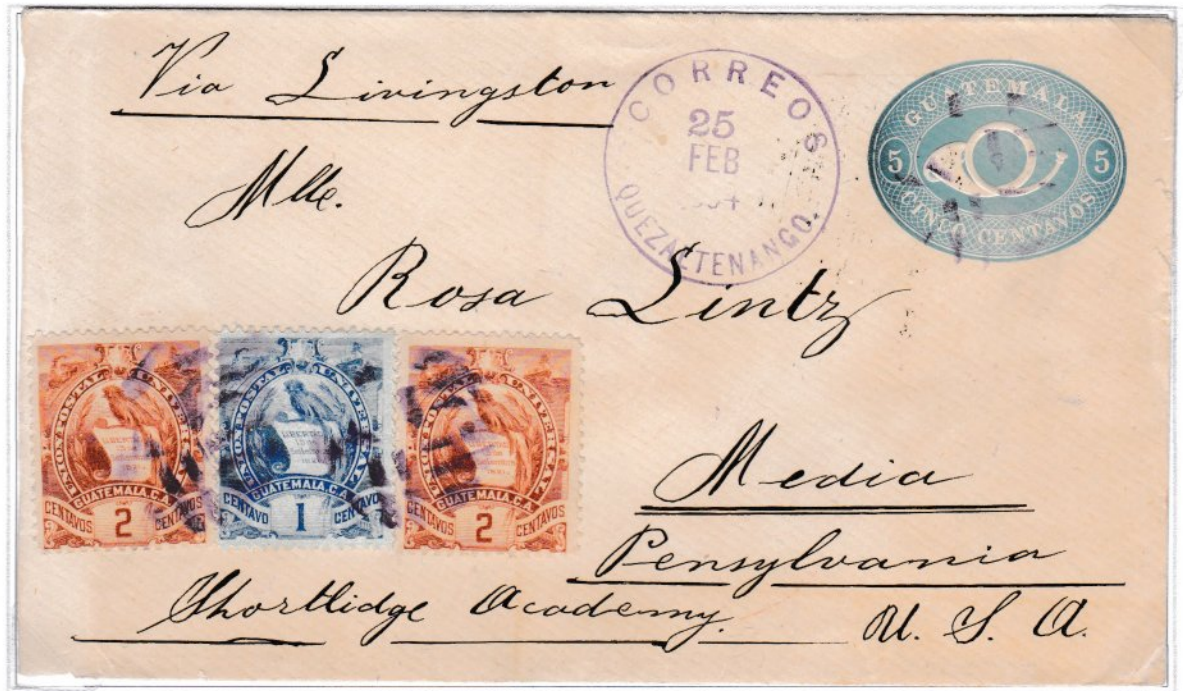 Via Livingston
CORREOS
25
FEB
QUEZALTENANGO.
GUATEMALA
5 5
CINCO CENTAVOS
Mlle.
Rosa Lintz
UNION POSTAL UNIVERSAL
LIBERTAD
GUATEMALA, C.A.
CENTAVOS 2 CENTAVOS
UNION POSTAL UNIVERSAL
LIBERTAD
GUATEMALA, C.A.
CENTAVO 1 CENTAVO
UNION POSTAL UNIVERSAL
GUATEMALA, C.A.
CENTAVOS 2 CENTAVOS
Media
Pensylvania
Shortlidge Academy. U. S. A.